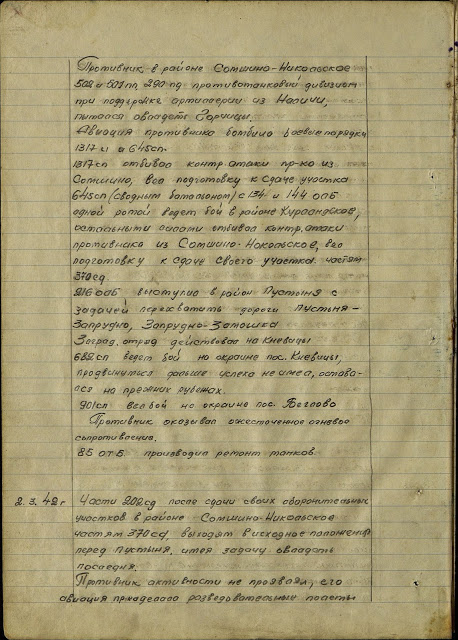 Противник в районе Сотшино-Никольское
502 и 501 пп, 290 пд противотанковый дивизион
при поддержке артиллерии из Налючи,
пытался овладеть Заручьи.
Авиация противника бомбила боевые порядки
1317 и 645сп.
1317сп отбивал контратаки пр-ка из
Сотшино, вел подготовку к сдаче участка
645сп (сводным батальоном) с 134 и 144 олб
одной ротой ведет бой в районе
остальными силами отбивал контратаки
противника из Сотшино-Накольское, вел
подготовку к сдаче своего участка частям
370сд.
216 олб выступил в район Пустыня с
задачей перехватить дороги Пустыня-
Запрудно, Запрудно-
Заград.отряд действовал на Кневицы
682сп ведет бой на окраине пос. Кневицы,
продвинуться дальше успеха не имел, остава-
лся на прежних рубежах.
901сп вел бой на окраине пос. Беглово
Противник оказывал ожесточенное огневое
сопротивление.
85 ОТБ производил ремонт танков
2.3.42г Части 202сд после сдачи своих оборонительных
участков в районе Сотшино-Никольское
частям 370сд, выходят в исходное положение
перед Пустыня, имея задачу овладеть
последней.
Противник активности не проявлял, его
авиация проделала разведовательные полеты